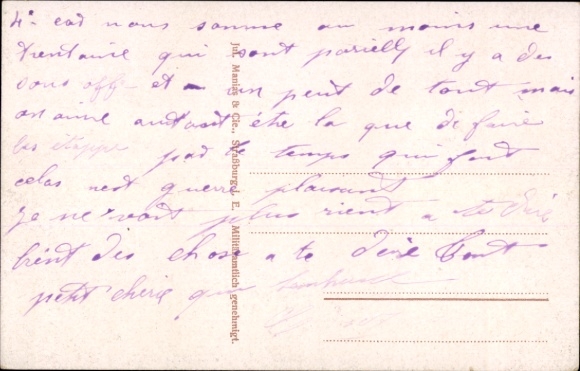 4e cad nous somme au moins une
trentaine qui sont pareille il y a des
sous off - et un peut de tout mais
on aime autant être la que de faire
les étappe par le temps qui font
celas nest guerre plaisant
je ne vois plus rient a te dire
bient des chose a te dire tout
petit chérie que
Jul. Manias & Cie., Straßburg i. E. Militäramtlich genehmigt.